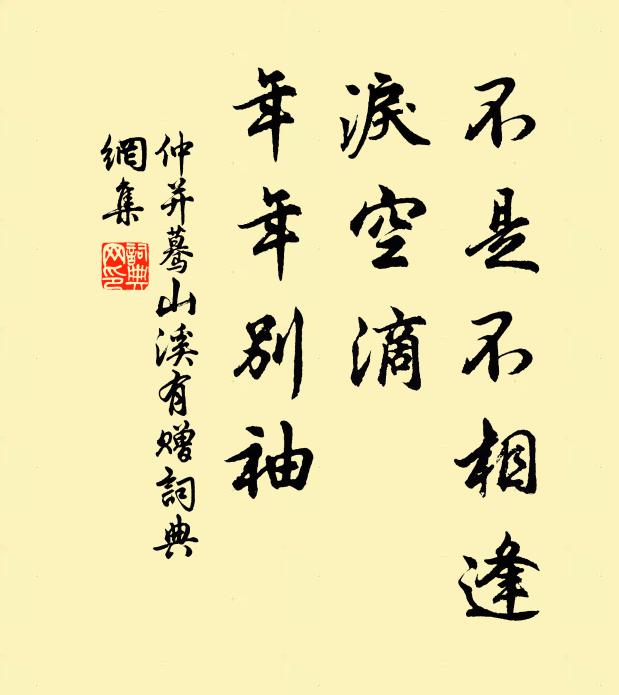 不是不相逢
淚空滴
年年別袖
仲并驀山溪有贈詞典
網集
詞典网印